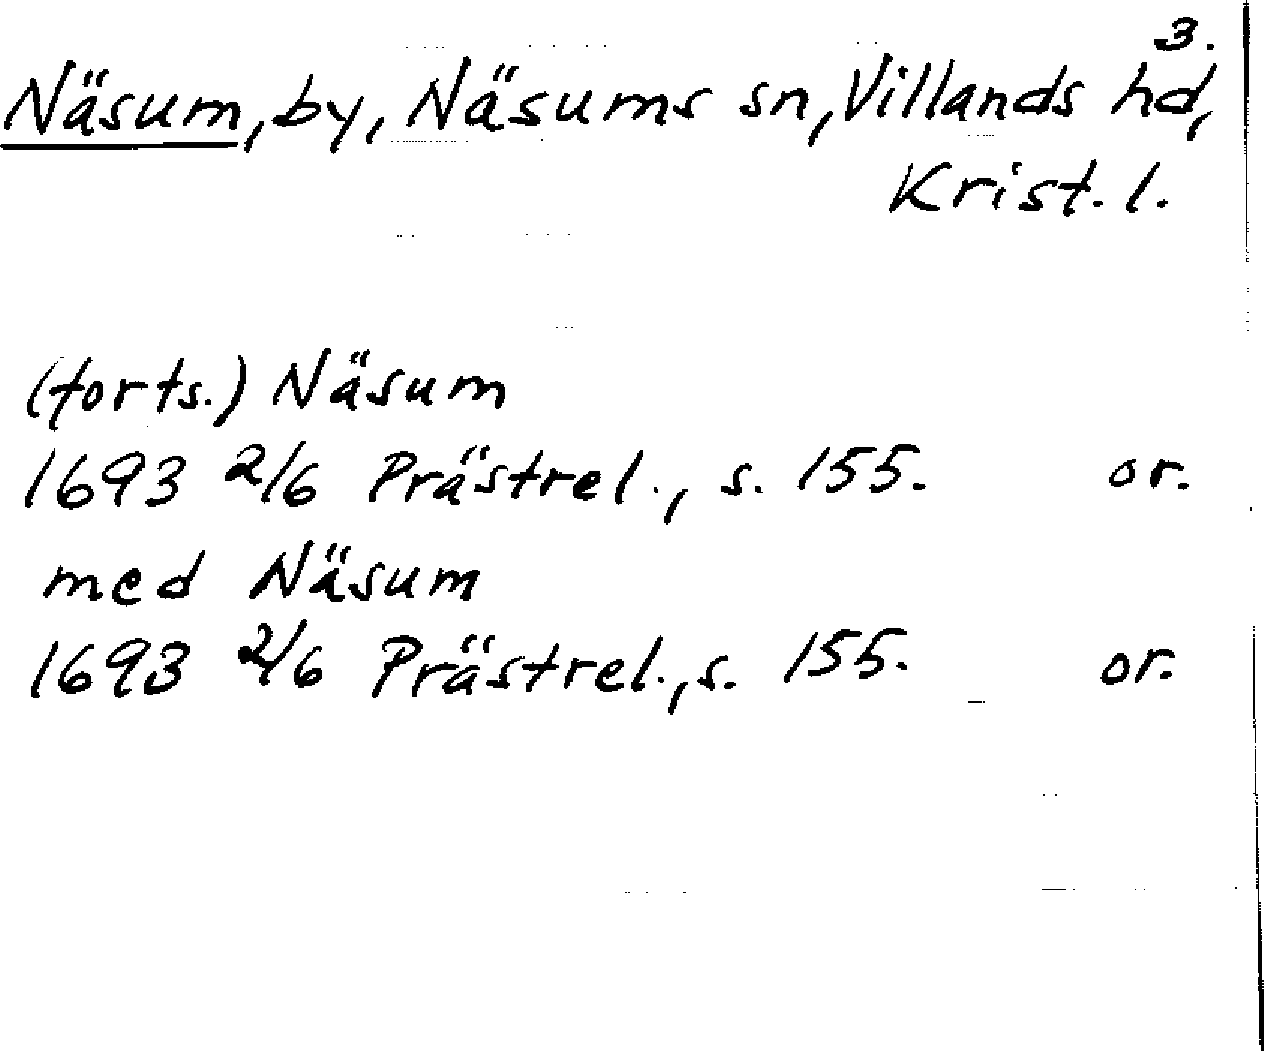 3.
Näsum, by, Näsums sn, Villands hd,
Krist. l.
(forts.) Näsum
1693 2/6 Prästrel., s. 155. or.
med Näsum
1693 2/6 Prästrel., s. 155. or.